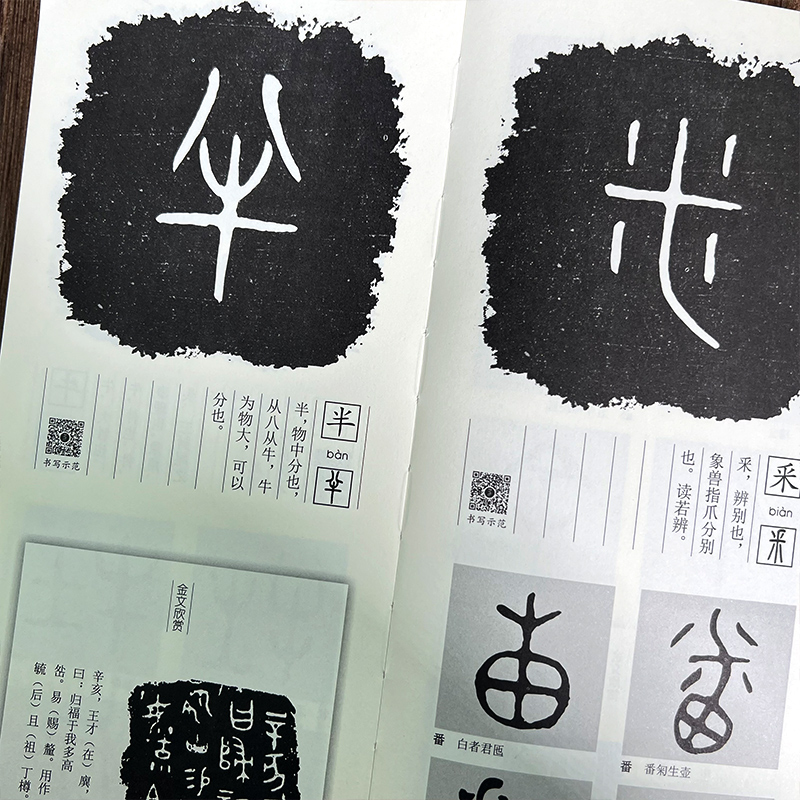 半
bàn
半，物中分也，
从八从牛，牛
为物大，可以
分也。
书写示范
金文欣赏
辛亥，王才（在）廙，
曰：归福于我多高
易（赐）釐。用作
毓（后）且（祖）丁樽。
釆
biàn
釆，辨别也，
象兽指爪分别
也。读若辨。
书写示范
番 白者君匜
番 番匊生壶